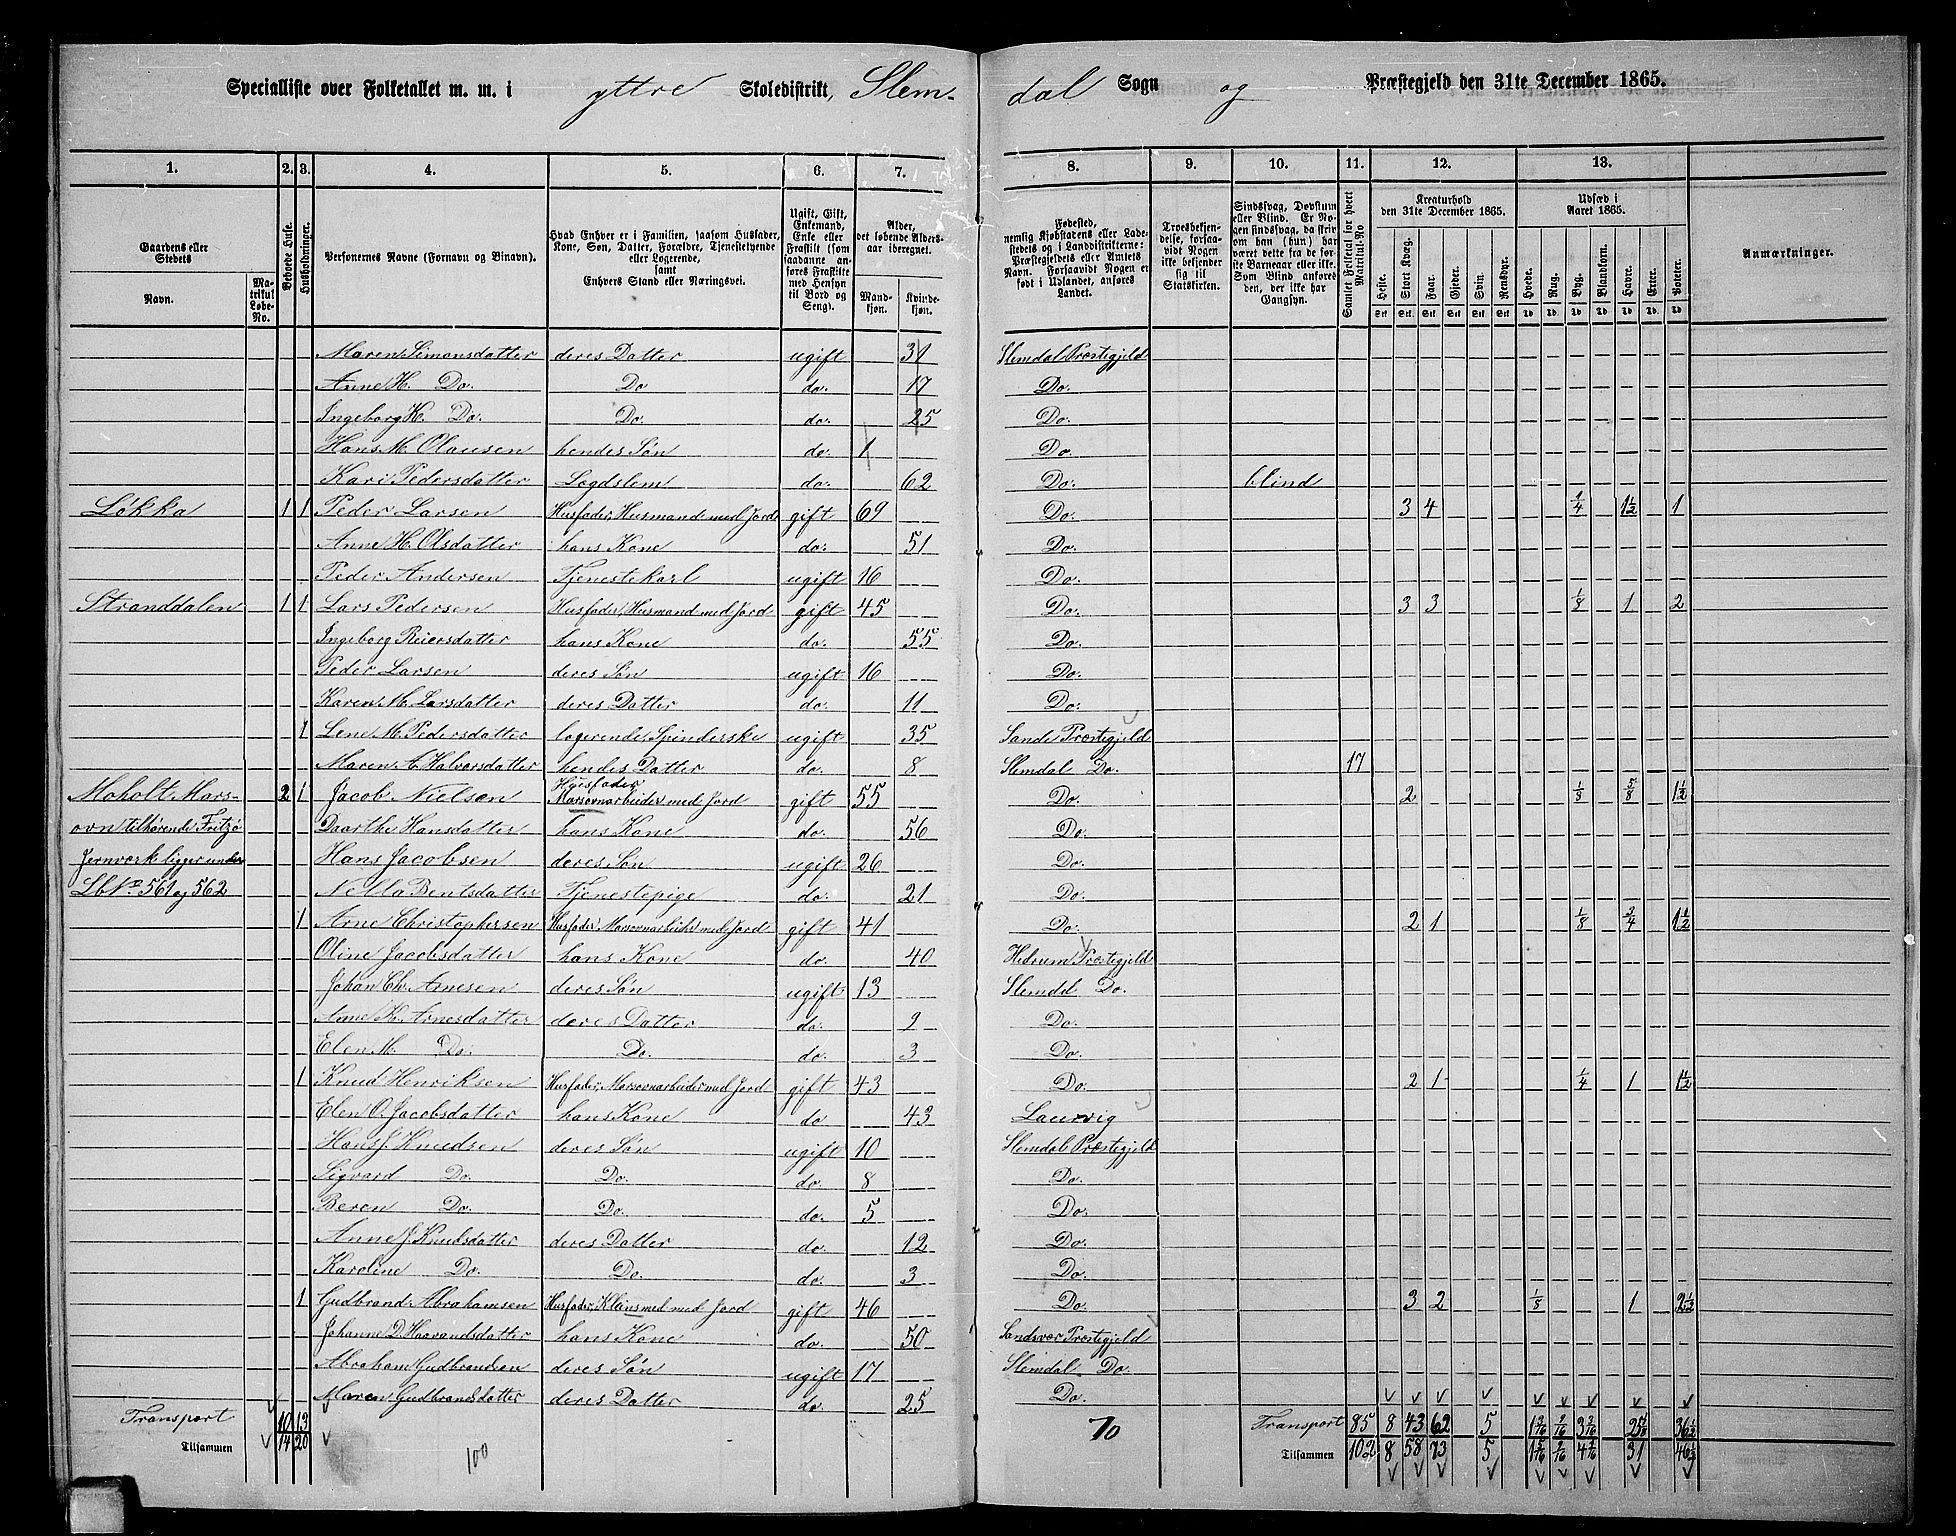 Specialliste over Folketallet m. m. i yttre Skoledistrikt, Slemdal Sogn og Præstegjeld den 31te December 1865.
1. 2. 3. 4. 5. 6. 7. 8. 9. 10. 11. 12. 13.
Gaardens eller Stedets
Navn.
Matrikul Løbe-No.
Beboede Huse.
Husholdninger.
Personernes Navne (Fornavn og Binavn).
Hvad Enhver er i Familien, saasom Husfader, Kone, Søn, Datter, Forældre, Tjenestetyende eller Logerende, samt Enhvers Stand eller Næringsvei.
Ugift, Gift, Enkemand, Enke eller Fraskilt (som saadanne anføres Fraskilte med Hensyn til Bord og Seng).
Alder, det løbende Aldersaar iberegnet.
Mandkjøn. Kvindekjøn.
Fødested, nemlig Kjøbstadens eller Ladestedets og i Landdistrikterne: Præstegjeldets eller Amtets Navn. Forsaavidt Nogen er født i Udlandet, anføres Landet.
Troesbekjendelse, forsaavidt Nogen ikke bekjender sig til Statskirken.
Sindssvag, Døvstum eller Blind. Er Nogen sindssvag, da skriver om han (hun) har været dette fra de første Barneaar eller ikke. Som Blind anføres den, der ikke har Gangsyn.
Samlet Folketal for hvert Matrikul-No
Kreaturhold den 31te December 1865.
Heste. Stort Kvæg. Faar. Gjeder. Svin. Rensdyr.
Udsæd i Aaret 1865.
Hvede. Rug. Byg. Blandkorn. Havre. Erter. Poteter.
Anmærkninger.
Maren Simonsdatter deres Datter ugift 31 Slemdal Præstegjeld
Anne H. Do. Do do. 17 Do.
Ingeborg K. Do. Do. do. 25 Do.
Hans M. Olausen hendes Søn do. 1 Do.
Kari Pedersdatter Lægdslem do. 62 Do. blind
Løkka 1 1 Peder Larsen Husfader, Husmand med Jord gift 69 Do. 3 4 1/4 1 1/2 1
Anne H. Olsdatter hans Kone do. 51 Do.
Peder Andersen Tjenestekarl ugift 16 Do.
Stranddalen 1 1 Lars Pedersen Husfader, Husmand med Jord gift 45 Do. 3 3 1/8 1 2
Ingeborg Reiersdatter hans Kone do. 55 Do.
Peder Larsen deres Søn ugift 16 Do.
Karen M. Larsdatter deres Datter do. 11 Do.
1 Lene M. Pedersdatter logerende, Spinderske ugift 35 Sande Præstegjeld
Maren A. Halvorsdatter hendes Datter do. 8 Slemdal Do. 17
Moholt Mars- 2 1 Jacob Nielsen Husfader Marsovnarbeider med Jord gift 55 Do. 2 1/8 5/8 1 1/2
ovn tilhørende Fritzø Daarthe Hansdatter hans Kone do. 56 Do.
Jernværk ligger under Hans Jacobsen deres Søn ugift 26 Do.
Lb No 561 og 562 Nella Bentsdatter Tjenestepige do. 21 Do.
1 Arne Christophersen Husfader, Marsovnarbeider med Jord gift 41 Do. 2 1 1/8 3/4 1 1/2
Oline Jacobsdatter hans Kone do. 40 Hedrum Præstegjeld
Johan Ch. Arnesen deres Søn ugift 13 Slemdal Do.
Anne K. Arnesdatter deres Datter do. 9 Do.
Elen M. Do. Do. do. 3 Do.
1 Knud Henriksen Husfader, Marsovnarbeider med Jord gift 43 Do. 2 1 1/4 1 1 1/2
Elen O. Jacobsdatter hans Kone do 43 Laurvig
Hans J. Knudsen deres Søn ugift 10 Slemdal Præstegjeld
Sigvard Do. Do. do. 8 Do.
Beren Do. Do. do. 5 Do.
Anne J. Knudsdatter deres Datter do. 12 Do.
Karoline Do. Do. do. 3 Do.
1 Gudbrand Abrahamsen Husfader, Kleinsmed med Jord gift 46 Do. 3 2 1/8 1 2 1/2
Johanne D. Haavandsdatter hans Kone do. 50 Sandsvær Præstegjeld
Abraham Gudbrandsen deres Søn ugift 17 Slemdal Do.
Maren Gudbrandsdatter deres Datter do 25 Do.
Transport 10 13 Transport 85 8 43 62 5
Tilsammen 14 20 100 70 Tilsammen 102 8 58 73 5 31